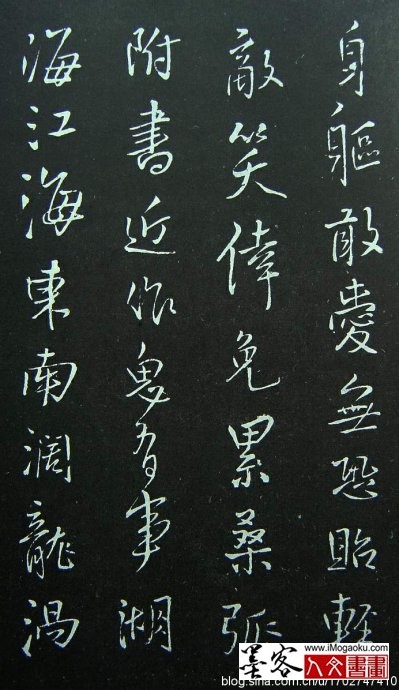 身軀敢愛無恐貽輕
敵笑倖免累桑弧
附書近作事湖
海江海東南濶龍渦
墨客
www.iMogaoku.com
人文書畫
blog.sina.com.cn/u/1702747410